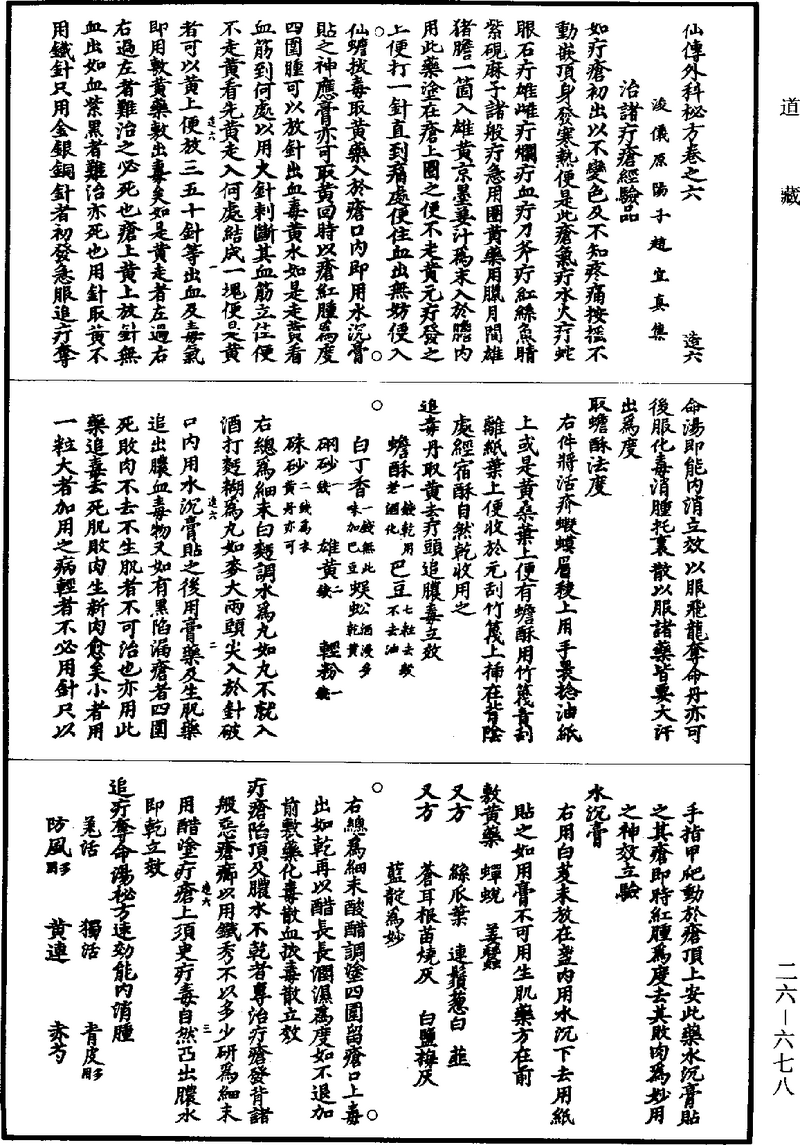 道藏
仙傳外科秘方卷之六　造六
浚儀原陽子趙宜真集
治諸疔瘡經驗品
如疔瘡初出以不變色及不知疼痛按搖不
動嵌頂身發寒熱便是此瘡氣疔水火疔蛇
眼石疔雄雌疔爛疔血疔刀斧疔紅絲魚睛
紫硯麻子諸般疔急用圈黃藥用臘月間雄
猪膽一箇入雄黃京墨薑汁為末入於膽內
用此藥塗在瘡上圈之便不走黃元疔發之
上便打一針直到痛處便住血出無妨便入
仙蟾拔毒取黃藥入於瘡口內即用水沉膏
貼之神應膏亦可取黃回時以瘡紅腫為度
四圍腫可以放針出血毒黃水如是走黃看
血筋到何處以用火針刺斷其血筋立住便
不走黃看先黃走入何處結成一塊便是黃
者可以黃上便放三五十針等出血及毒氣
即用敷黃藥敷出毒矣如是黃走者左過右
右過左者難治之必死也瘡上黃上放針無
血出如血紫黑者難治亦死也用針取黃不
用鐵針只用金銀銅針者初發急服追疔奪
命湯即能內消立效以服飛龍奪命丹亦可
後服化毒消腫托裏散以服諸藥皆要大汗
出為度
取蟾酥法度
右件將活疥蝦蟆眉稜上用手裹捻油紙
上或是黃桑葉上便有蟾酥用竹篾青刮
離紙葉上便收於元刮竹篾上插在背陰
處經宿酥自然乾收用之
追毒丹取黃去疔頭追膿毒立效
蟾酥一錢乾用老酒化　巴豆七粒去殼不去油
白丁香一錢無此味加巴豆　蜈蚣酒浸多乾黃
硇砂一錢　雄黃二錢　輕粉一錢
硃砂二錢為衣黃丹亦可
右總為細末白麵調水為丸如丸不就入
酒打麵糊為丸如麥大兩頭尖入於針破
口內用水沉膏貼之後用膏藥及生肌藥
追出膿血毒物又如有黑陷漏瘡者四圍
死敗肉不去不生肌者不可治也亦用此
藥追毒去死肌敗肉生新肉愈矣小者用
一粒大者加用之病輕者不必用針只以
手指甲爬動於瘡頂上安此藥水沉膏貼
之其瘡即時紅腫為度去其敗肉為妙用
之神效立驗
水沉膏
右用白芨末放在盞內用水沉下去用紙
貼之如用膏不可用生肌藥方在前
敷黃藥　蟬蛻　姜蠶
又方　絲瓜葉　連鬚蔥白　韭
又方　蒼耳根苗燒灰　白鹽梅灰
藍靛為妙
右總為細末酸醋調塗四圍留瘡口上毒
出如乾再以醋長長潤濕為度如不退加
前敷藥化毒散血拔毒散立效
疔瘡陷頂及膿水不乾者專治疔瘡發背諸
般惡瘡瘤以用鐵秀不以多少研為細末
用醋塗疔瘡上須臾疔毒自然凸出膿水
即乾立效
追疔奪命湯秘方速効能內消腫
羌活　獨活　青皮多用
防風多用　黃連　赤芍
二六—六七八